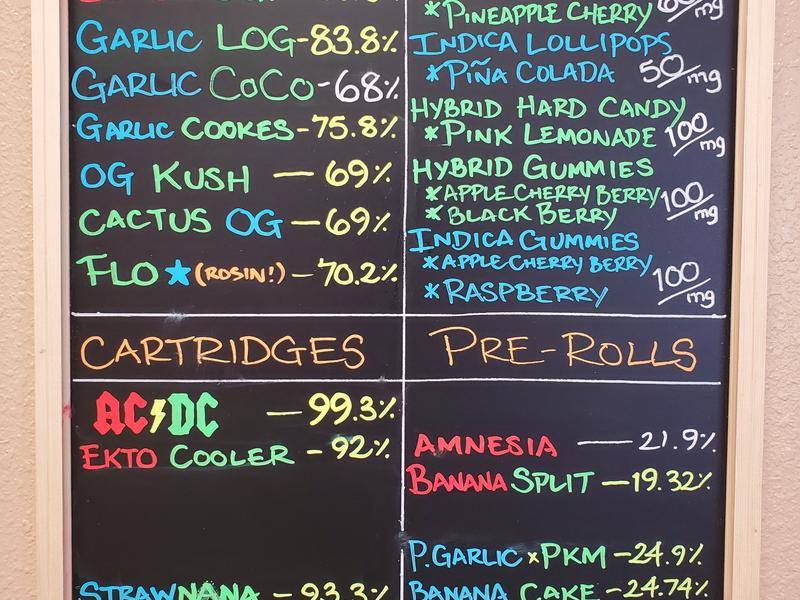 GARLIC LOG-83.8%
GARLIC COCO-68%
GARLIC COOKES-75.8%
OG KUSH — 69%
CACTUS OG — 69%
FLO ★ (ROSIN!) — 70.2%
*PINEAPPLE CHERRY mg
INDICA LOLLIPOPS
*PIÑA COLADA 50/mg
HYBRID HARD CANDY
*PINK LEMONADE 100/mg
HYBRID GUMMIES
*APPLE CHERRY BERRY 100/mg
*BLACK BERRY
INDICA GUMMIES
*APPLE CHERRY BERRY
*RASPBERRY 100/mg
CARTRIDGES
AC⚡DC — 99.3%
EKTO COOLER - 92%
STRAWNANA - 93.3%
PRE-ROLLS
AMNESIA — 21.9%
BANANA SPLIT — 19.32%
P.GARLIC x PKM - 24.9%
BANANA CAKE - 24.74%